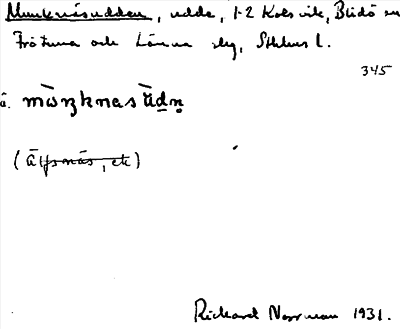 Munknäsudden, udde, 1-2 Kolsvik, Blidö sn
Frötuna och Länna slg, Sthlms l.
345
a. mɷŋknasùdn̥
(älfsnäs, etc)
Richard Norrman 1931.